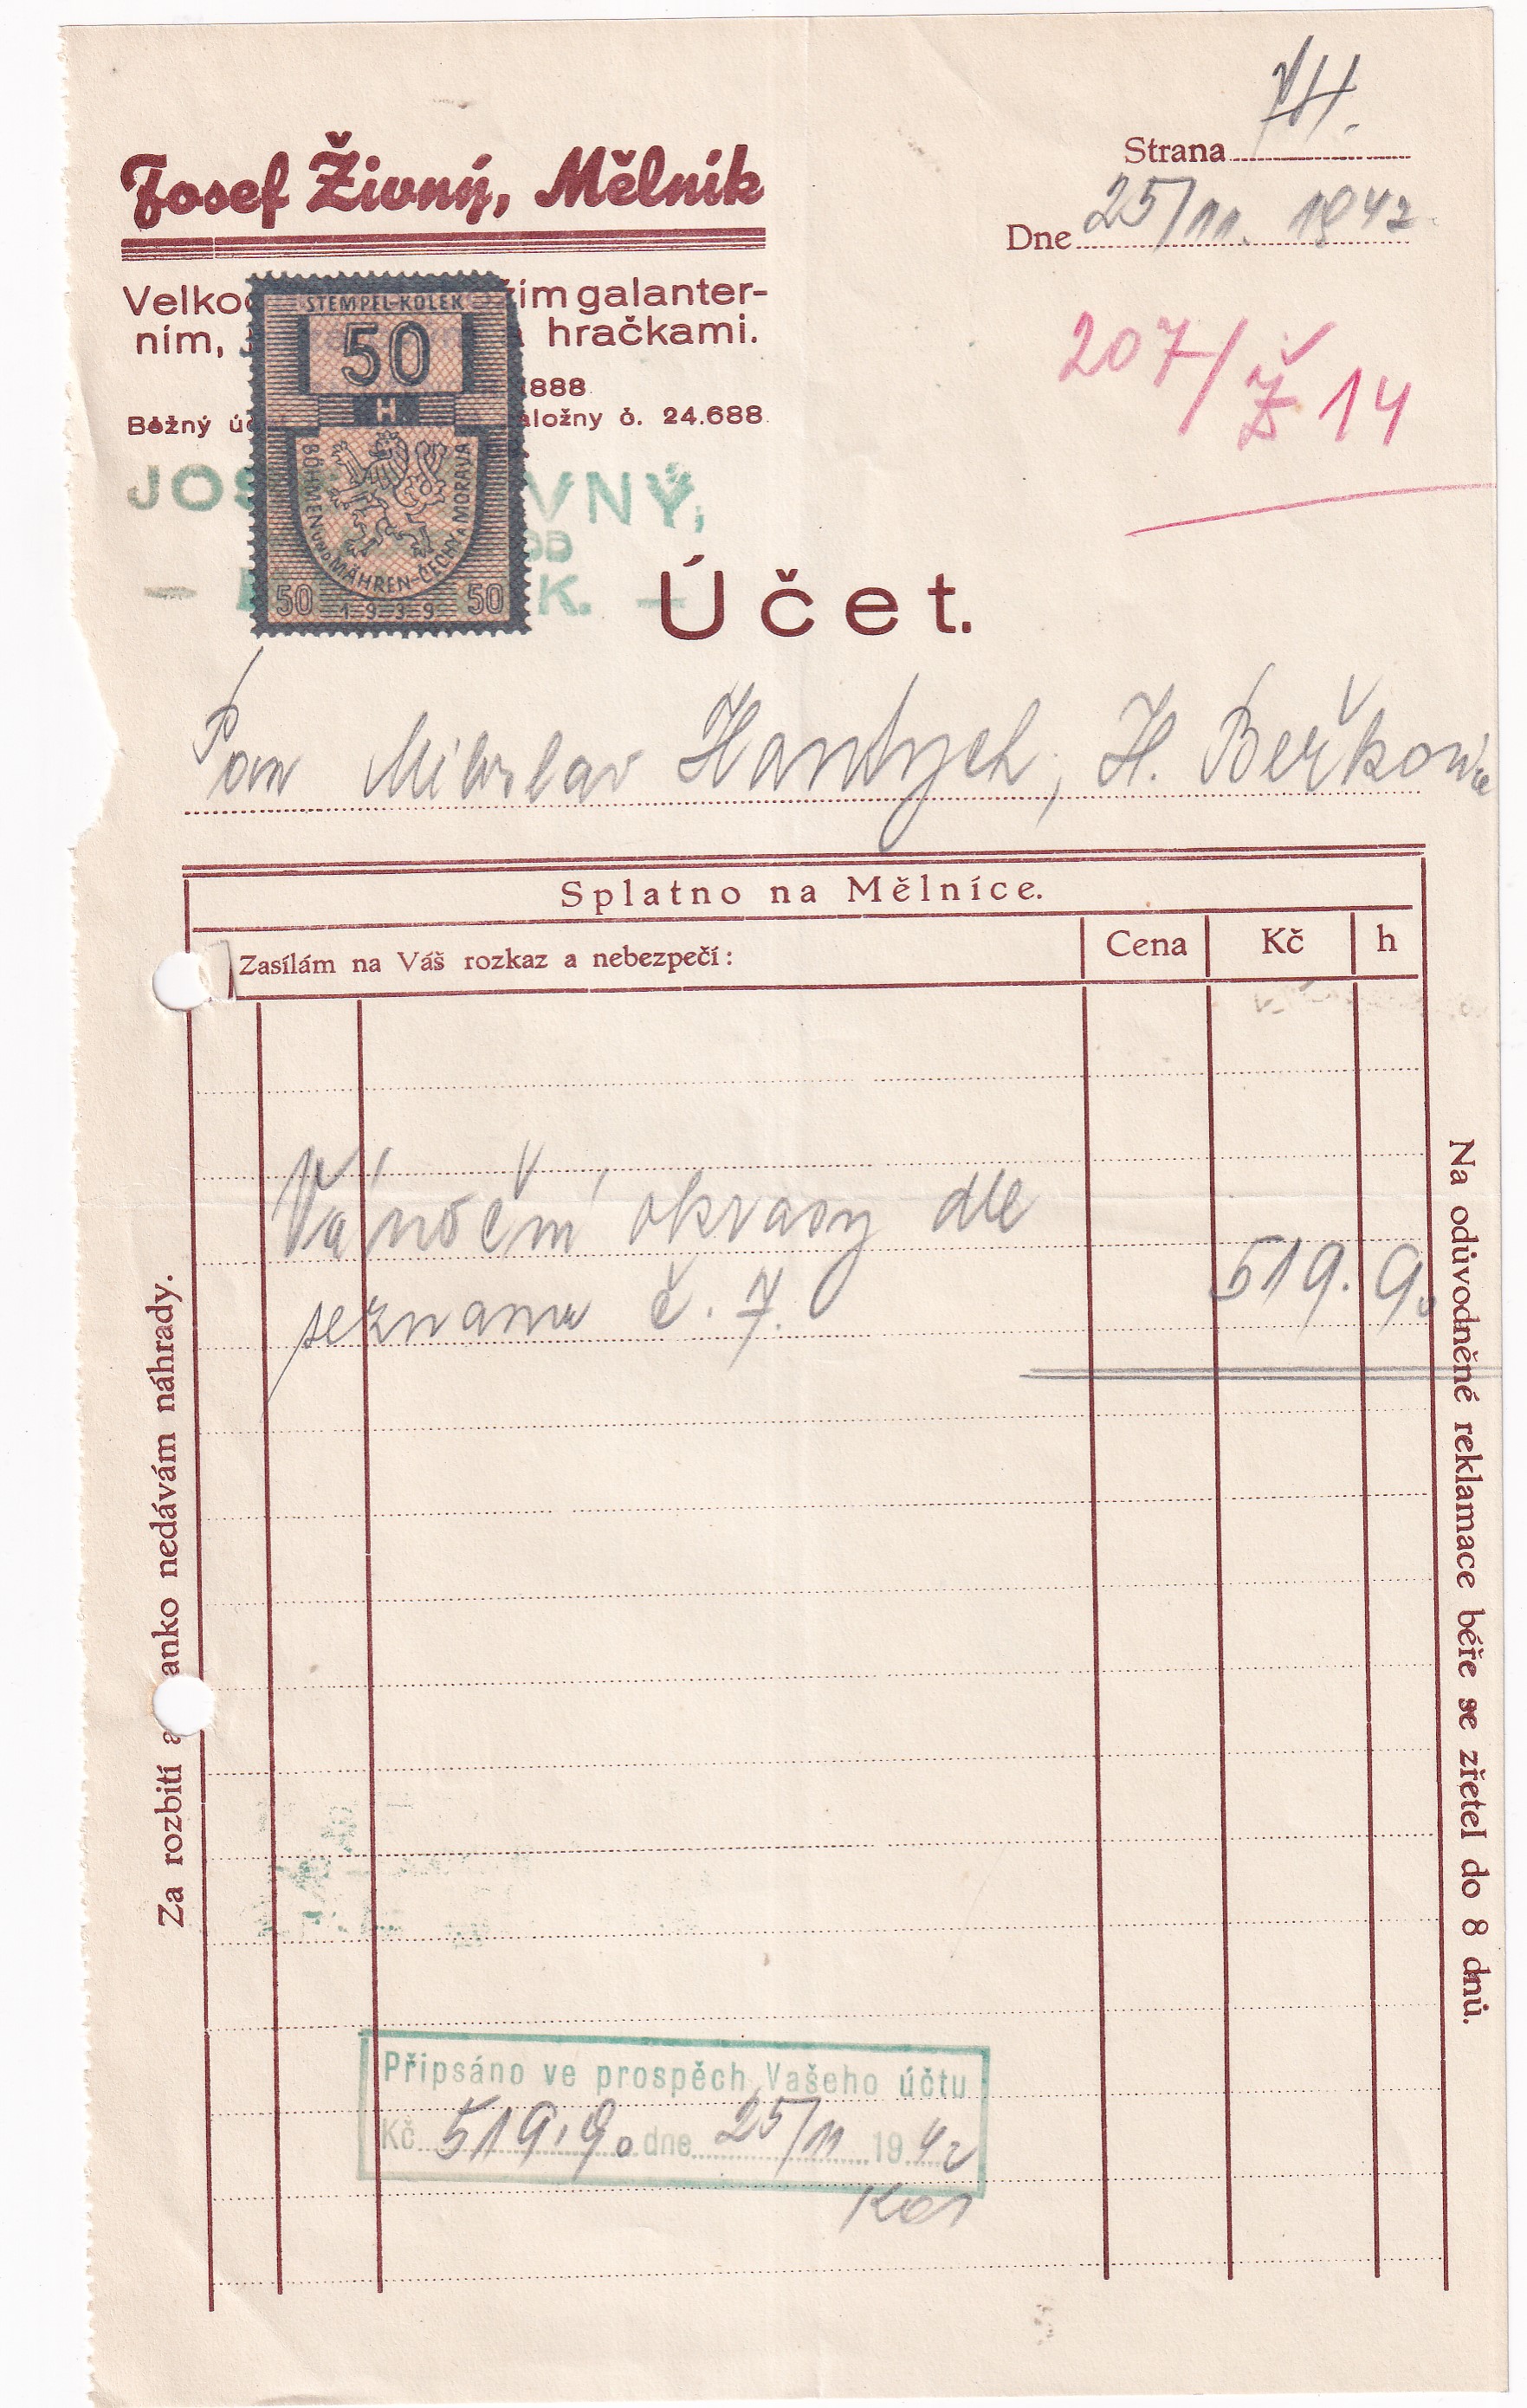 VII.
Strana
Josef Živný, Mělník
Dne 25/11. 1942
Velko zím galanter-
ním, hračkami.
1888
Běžný áložny č. 24.688
207/Ž 14
STEMPEL-KOLEK
50
H
BÖHMEN UND MÄHREN-ČECHY A MORAVA
50 1939 50
JOS VNÝ,
OD
K.
Účet.
Pan Miloslav Hantych, H. Beřkovice
Splatno na Mělníce.
Zasílám na Váš rozkaz a nebezpečí: Cena Kč h
Vánoční okrasy dle
seznamu č. 7. 519. 90
Za rozbití a anko nedávám náhrady.
Na odůvodněné reklamace béře se zřetel do 8 dnů.
Připsáno ve prospěch Vašeho účtu
Kč 519,90 dne 25/11 1942